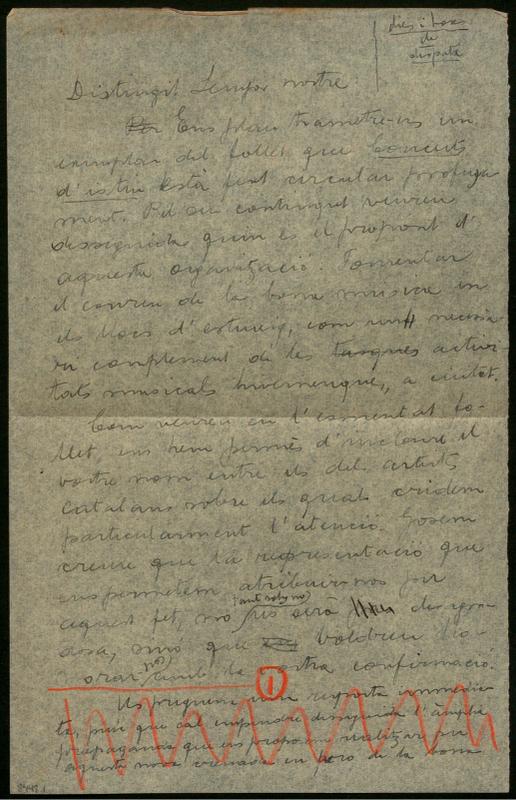 dies i hores
de
disputa
Distingit Senyor nostre:
Ens plau trametre-us un
exemplar del follet que Concerts
d'istiu està fent circular profusa
ment. Pel seu contingut veureu
desseguida quin es el propòsit d'
aquesta organització. Fomentar
el conreu de la bona música en
els llocs d'estiueig, com un necessa-
ri complement de les tasques activi-
tats musicals hivernenques, a ciutat.
Com veureu en l'esmentat fo-
llet, ens hem permès d'incloure el
vostre nom entre els dels artistes
Catalans sobre els quals cridem
particularment l'atenció. Gosem
creure que la representació que
ens permetem atribuir-nos per
aquest fet, no us serà desagra-
dosa, sinó que voldreu ho-
norar-nos amb la vostra confirmació.
1
Us preguem una resposta immedia-
ta, puix que cal empendre desseguida l'àmplia
propaganda que ens proposem realitzar per
aquesta nova creuada en pro de la bona